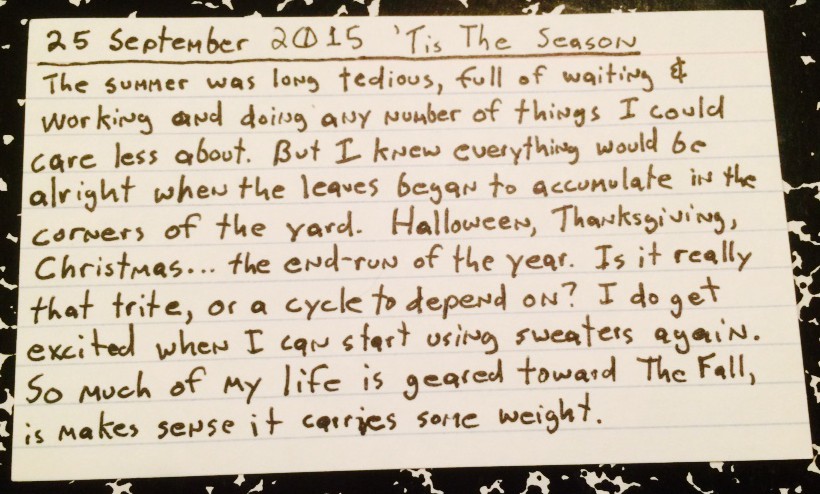 25 September 2015 'Tis The Season
The summer was long tedious, full of waiting &
working and doing any number of things I could
care less about. But I knew everything would be
alright when the leaves began to accumulate in the
corners of the yard. Halloween, Thanksgiving,
Christmas... the end-run of the year. Is it really
that trite, or a cycle to depend on? I do get
excited when I can start using sweaters again.
So much of my life is geared toward The Fall,
is makes sense it carries some weight.